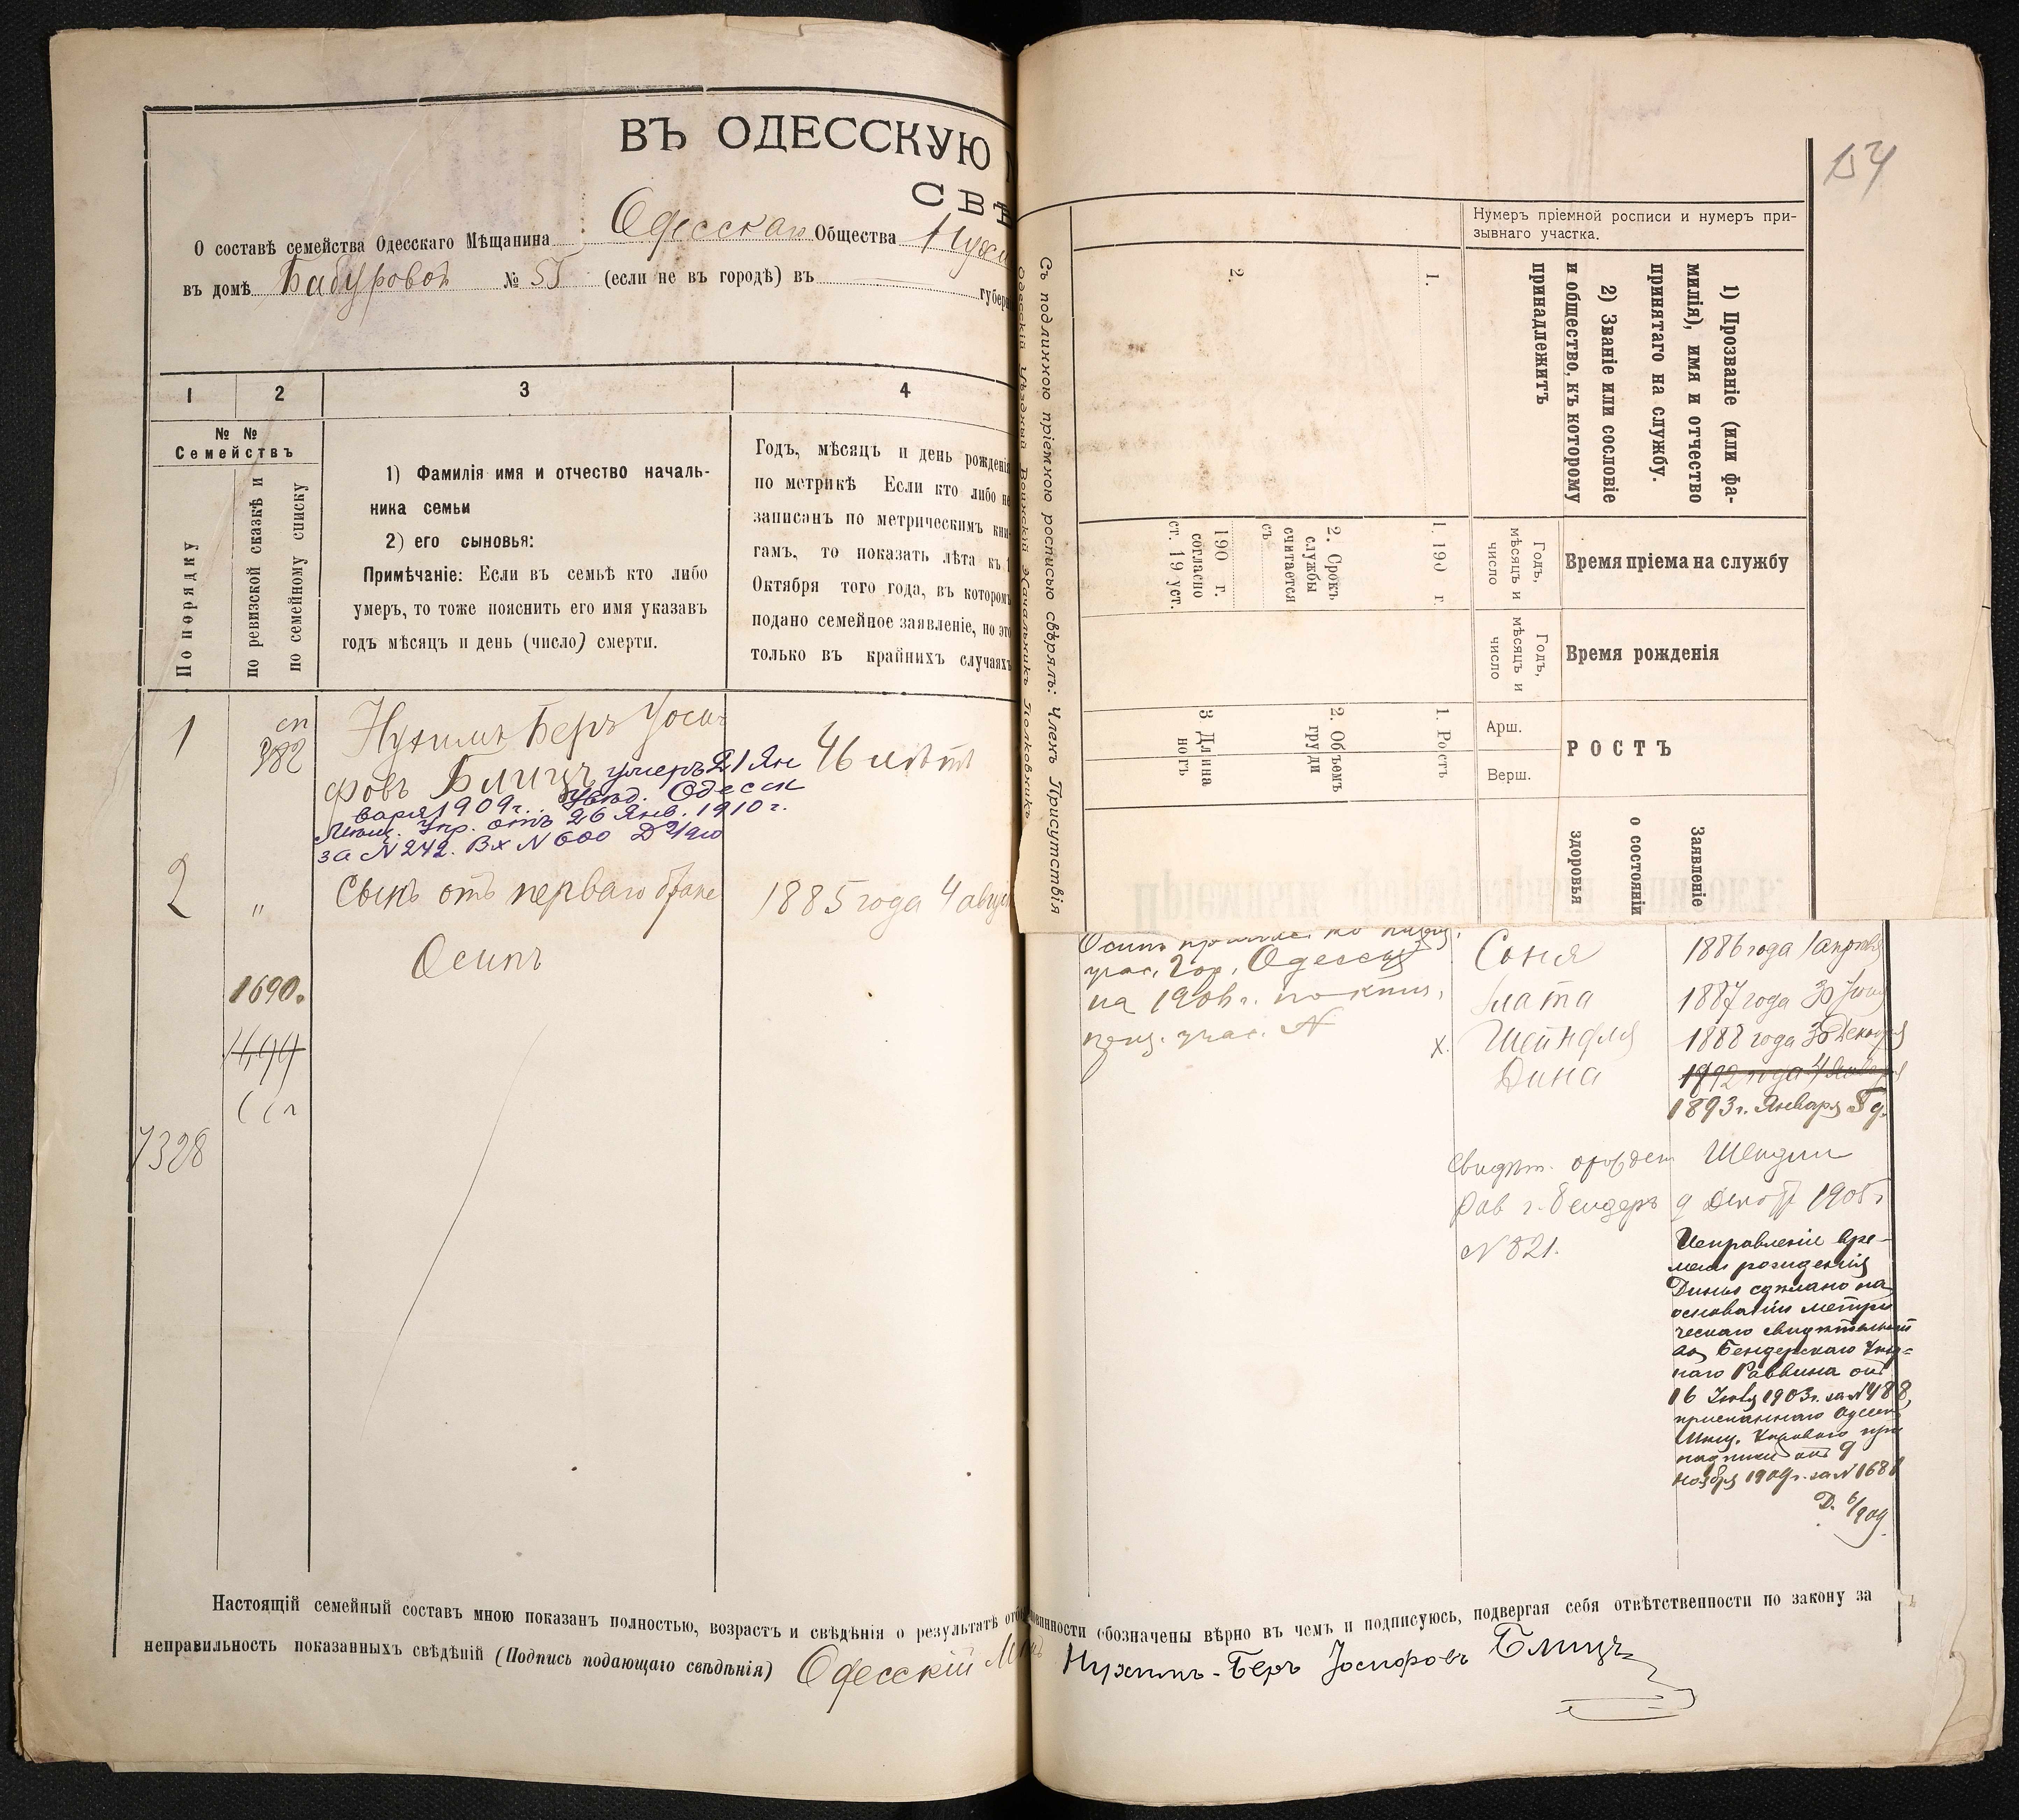 ВЪ ОДЕССКУЮ
СВѢ
О составѣ семейства Одесскаго Мѣщанина Одесскаго Общества Нухи
въ домѣ Бабуровой № 55 (если не въ городѣ) въ губер
1
2
3
4
№ №
Семействъ
По порядку
по ревизской сказкѣ и
по семейному списку
1) Фамилія имя и отчество началь-
ника семьи
2) его сыновья:
Примѣчаніе: Если въ семьѣ кто либо
умеръ, то тоже пояснить его имя указавъ
годъ мѣсяцъ и день (число) смерти.
Годъ, мѣсяцъ и день рожденія
по метрикѣ Если кто либо не
записанъ по метрическимъ кни-
гамъ, то показать лѣта къ 1
Октября того года, въ которомъ
подано семейное заявленіе, но это
только въ крайнихъ случаяхъ
1
сп
382
Нухимъ Беръ Іоси-
фовъ Блицъ умеръ 21 Ян
варя 1909 г. Увѣд. Одесск
Мѣщ. Упр. отъ 26 Янв. 1910 г.
за N 242. Вх N 600
46 лѣтъ
2
"
Сынъ отъ перваго брака
Осипъ
1885 года 4 август
1690.
1499
7328
154
Нумеръ пріемной росписи и нумеръ при-
зывнаго участка.
1) Прозваніе (или фа-
милія), имя и отчество
принятаго на службу.
2) Званіе или сословіе
и общество, къ которому
принадлежитъ
1.
2.
Время пріема на службу
Годъ,
мѣсяцъ и
число
1. 190 г.
2. Срокъ
службы
считается
съ
190 г.
согласно
ст. 19 уст.
Время рожденія
Годъ,
мѣсяцъ и
число
РОСТЪ
Арш.
Верш.
1. Ростъ
2. Объемъ
груди
3. Длина
ногъ
Заявленіе
о состояніи
здоровья
Съ подлинною пріемною росписью свѣрялъ: Членъ Присутствія
Одесскій Уѣздный Воинскій Начальникъ Полковникъ
Осипъ
учас. гор. Одессы
на 1906 г.
учас. N
Соня
1886 года 1 апрѣля
Злата
1887 года 30
х.
Шейндля
1888 года 30 Декабря
Дина
1892 года 4 Января
1893 г. Января 5 д.
Свидѣт.
Рав г. Бендеръ
N 821.
Шендли
9 Декаб 1905 г
Исправленіе вре-
мени рожденія
Дины сдѣлано на
основаніи метри
ческаго свидѣтельст
ва Бендерскаго Уѣзд-
наго Раввина отъ
16 Іюля 1903 г. за N 488,
присланнаго Одесск
Мѣщ. Управою при
надписи отъ 9
ноября 1904 г. за N 1681
Д. 6/904
Настоящій семейный составъ мною показанъ полностью, возрастъ и свѣдѣнія о результатѣ отбы повинности обозначены вѣрно въ чемъ и подписуюсь, подвергая себя отвѣтственности по закону за
неправильность показанныхъ свѣдѣній (Подпись подающаго свѣдѣнія) Одесскій Мѣщ Нухимъ-Беръ Іосифовъ Блицъ